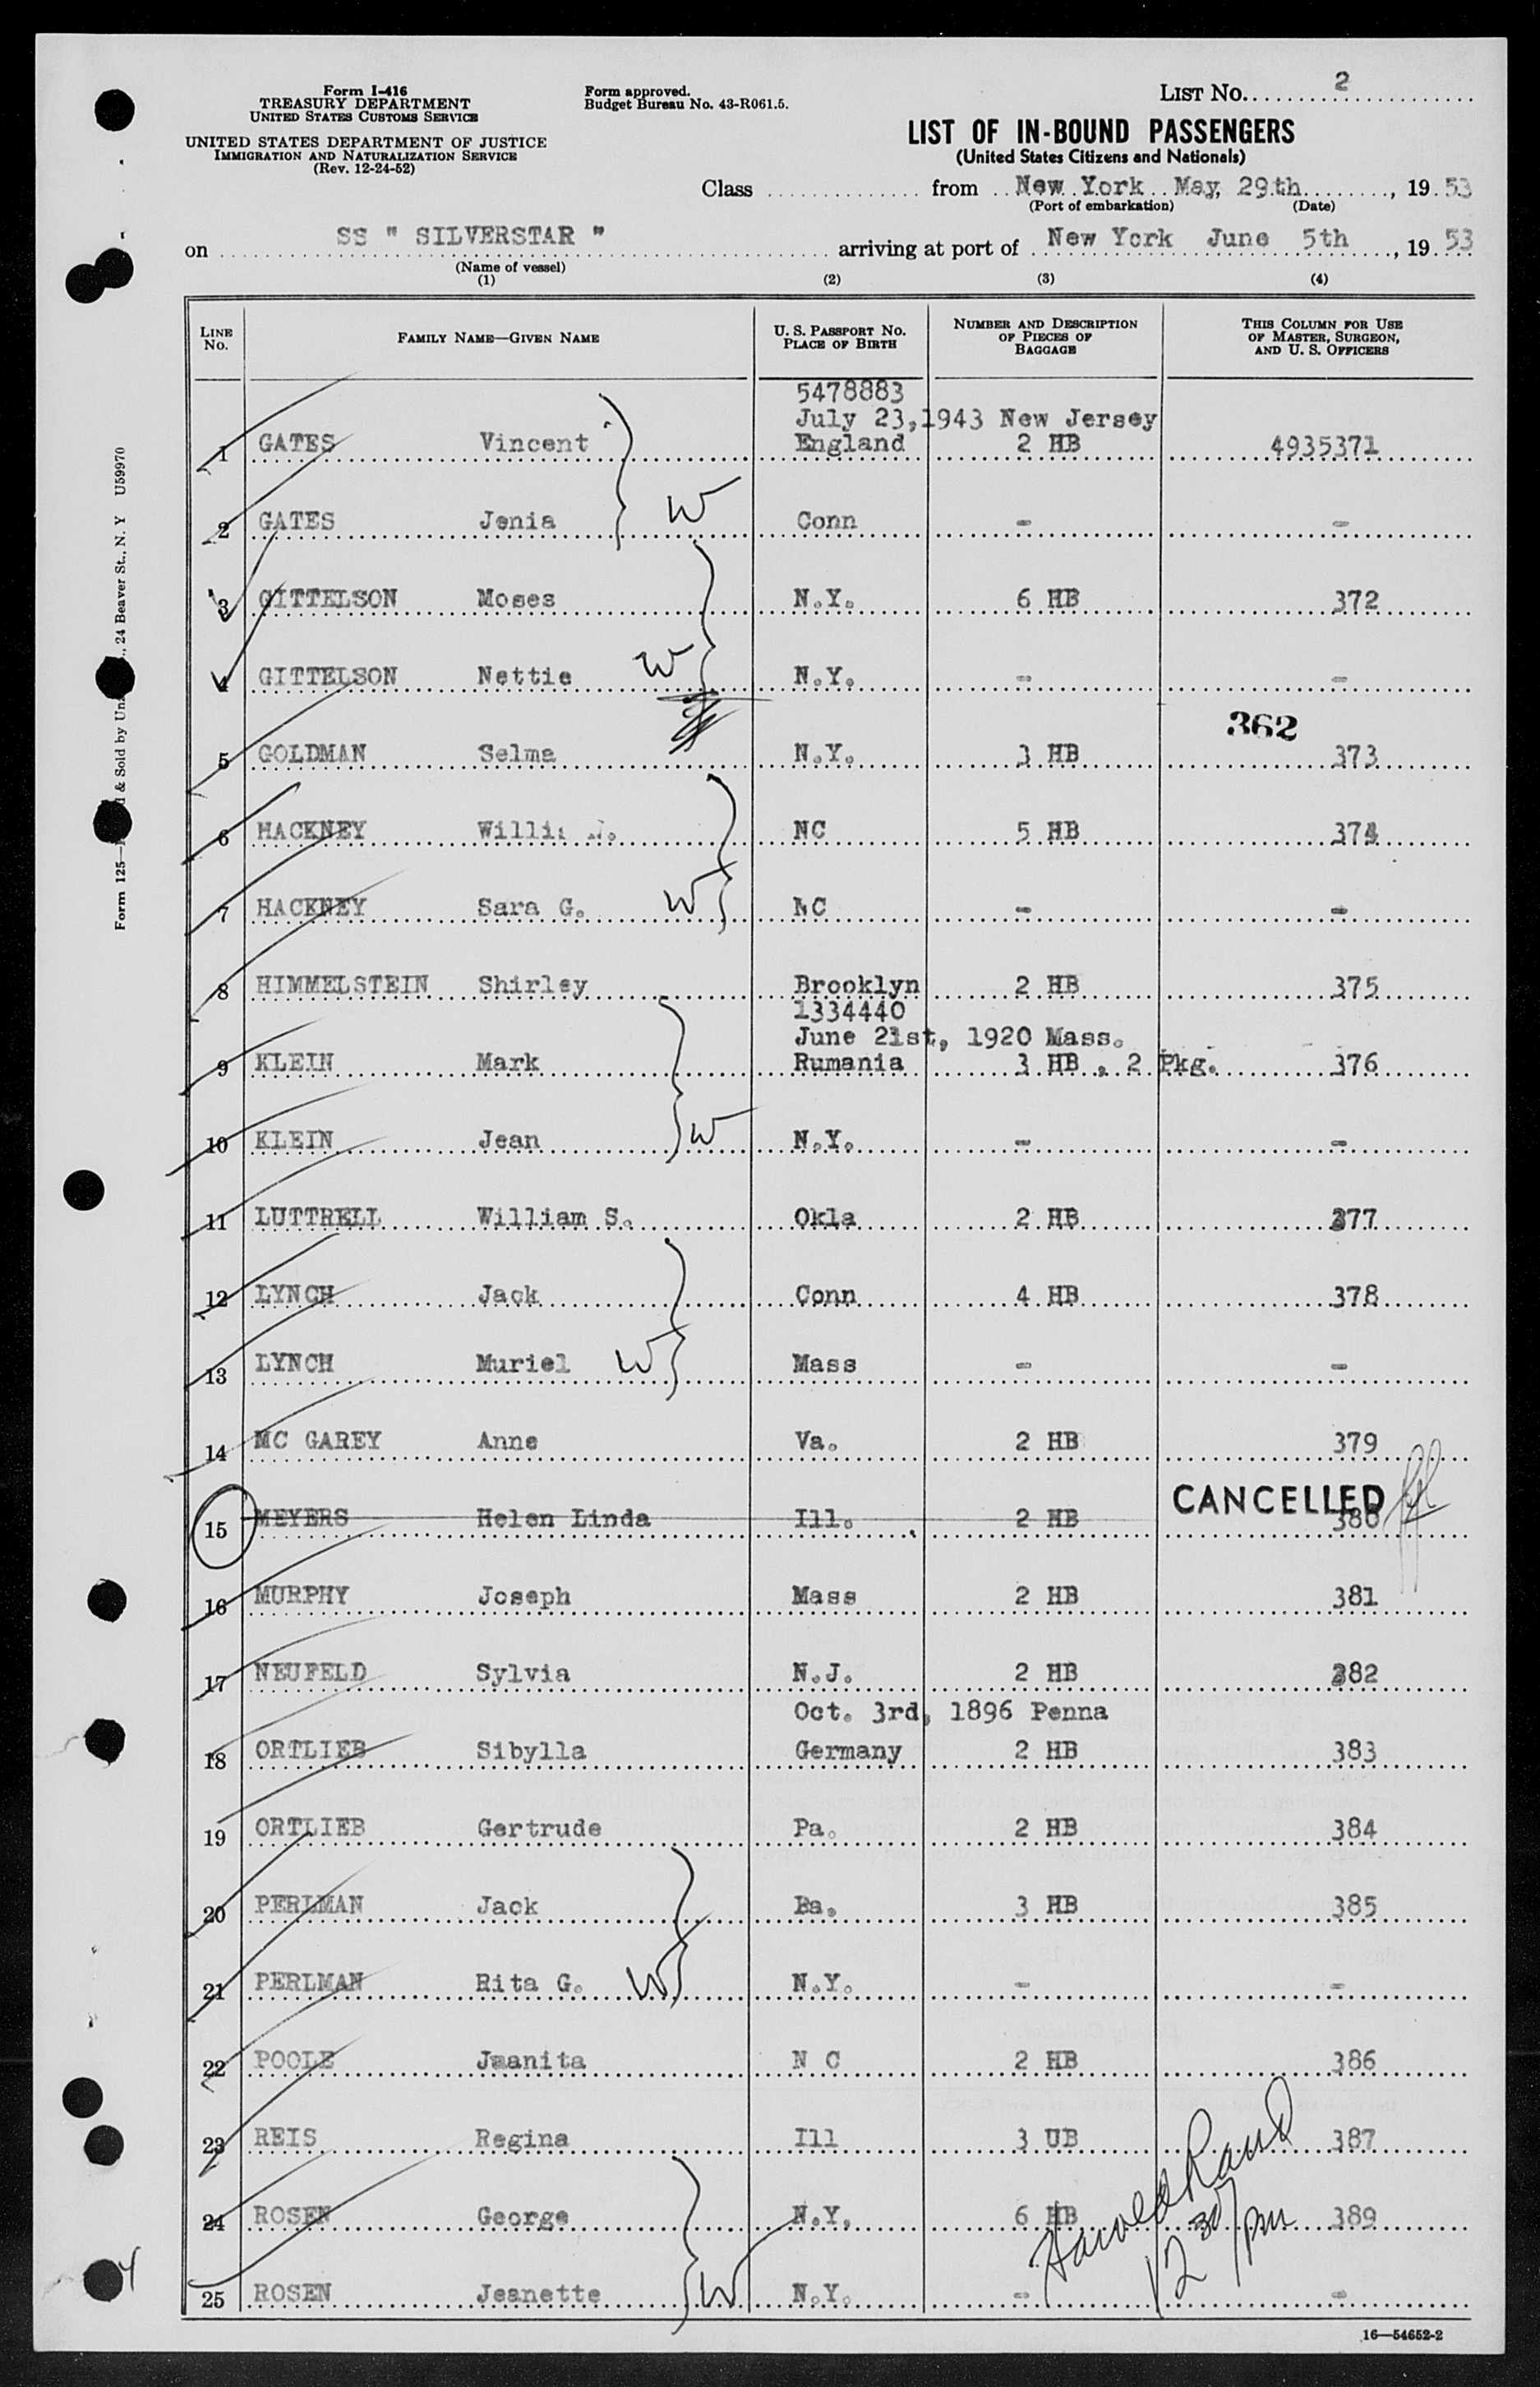 Form I-416
TREASURY DEPARTMENT
UNITED STATES CUSTOMS SERVICE
UNITED STATES DEPARTMENT OF JUSTICE
IMMIGRATION AND NATURALIZATION SERVICE
(Rev. 12-24-52)
Form approved.
Budget Bureau No. 43-R061.5.
LIST NO. 2
LIST OF IN-BOUND PASSENGERS
(United States Citizens and Nationals)
Class from New York May, 29th, 1953
(Port of embarkation) (Date)
on SS " SILVERSTAR " arriving at port of New York June 5th, 1953
(Name of vessel)
(1) (2) (3) (4)
LINE NO. FAMILY NAME—GIVEN NAME U. S. PASSPORT NO. PLACE OF BIRTH NUMBER AND DESCRIPTION OF PIECES OF BAGGAGE THIS COLUMN FOR USE OF MASTER, SURGEON, AND U. S. OFFICERS
5478883
July 23,1943 New Jersey
1 GATES Vincent England 2 HB 4935371
2 GATES Jenia W Conn - -
3 GITTELSON Moses N.Y. 6 HB 372
4 GITTELSON Nettie W N.Y. - -
362
5 GOLDMAN Selma N.Y. 3 HB 373
6 HACKNEY NC 5 HB 374
7 HACKNEY Sara G. W NC - -
8 HIMMELSTEIN Shirley Brooklyn 2 HB 375
1334440
June 21st, 1920 Mass.
9 KLEIN Mark Rumania 3 HB , 2 Pkg. 376
10 KLEIN Jean W N.Y. - -
11 LUTTRELL William S. Okla 2 HB 377
12 LYNCH Jack Conn 4 HB 378
13 LYNCH Muriel W Mass - -
14 MC GAREY Anne Va. 2 HB 379
CANCELLED
15 MEYERS Helen Linda Ill. 2 HB 380
16 MURPHY Joseph Mass 2 HB 381
17 NEUFELD Sylvia N.J. 2 HB 382
Oct. 3rd, 1896 Penna
18 ORTLIEB Sibylla Germany 2 HB 383
19 ORTLIEB Gertrude Pa. 2 HB 384
20 PERLMAN Jack Pa. 3 HB 385
21 PERLMAN Rita G. W N.Y. - -
22 POOLE Juanita N C 2 HB 386
23 REIS Regina Ill 3 UB 387
24 ROSEN George N.Y, 6 HB 389
25 ROSEN Jeanette W N.Y. - -
Harold Rand
12 30/pm
4
16—54652-2
Form 125— & Sold by 24 Beaver St., N. Y U59970